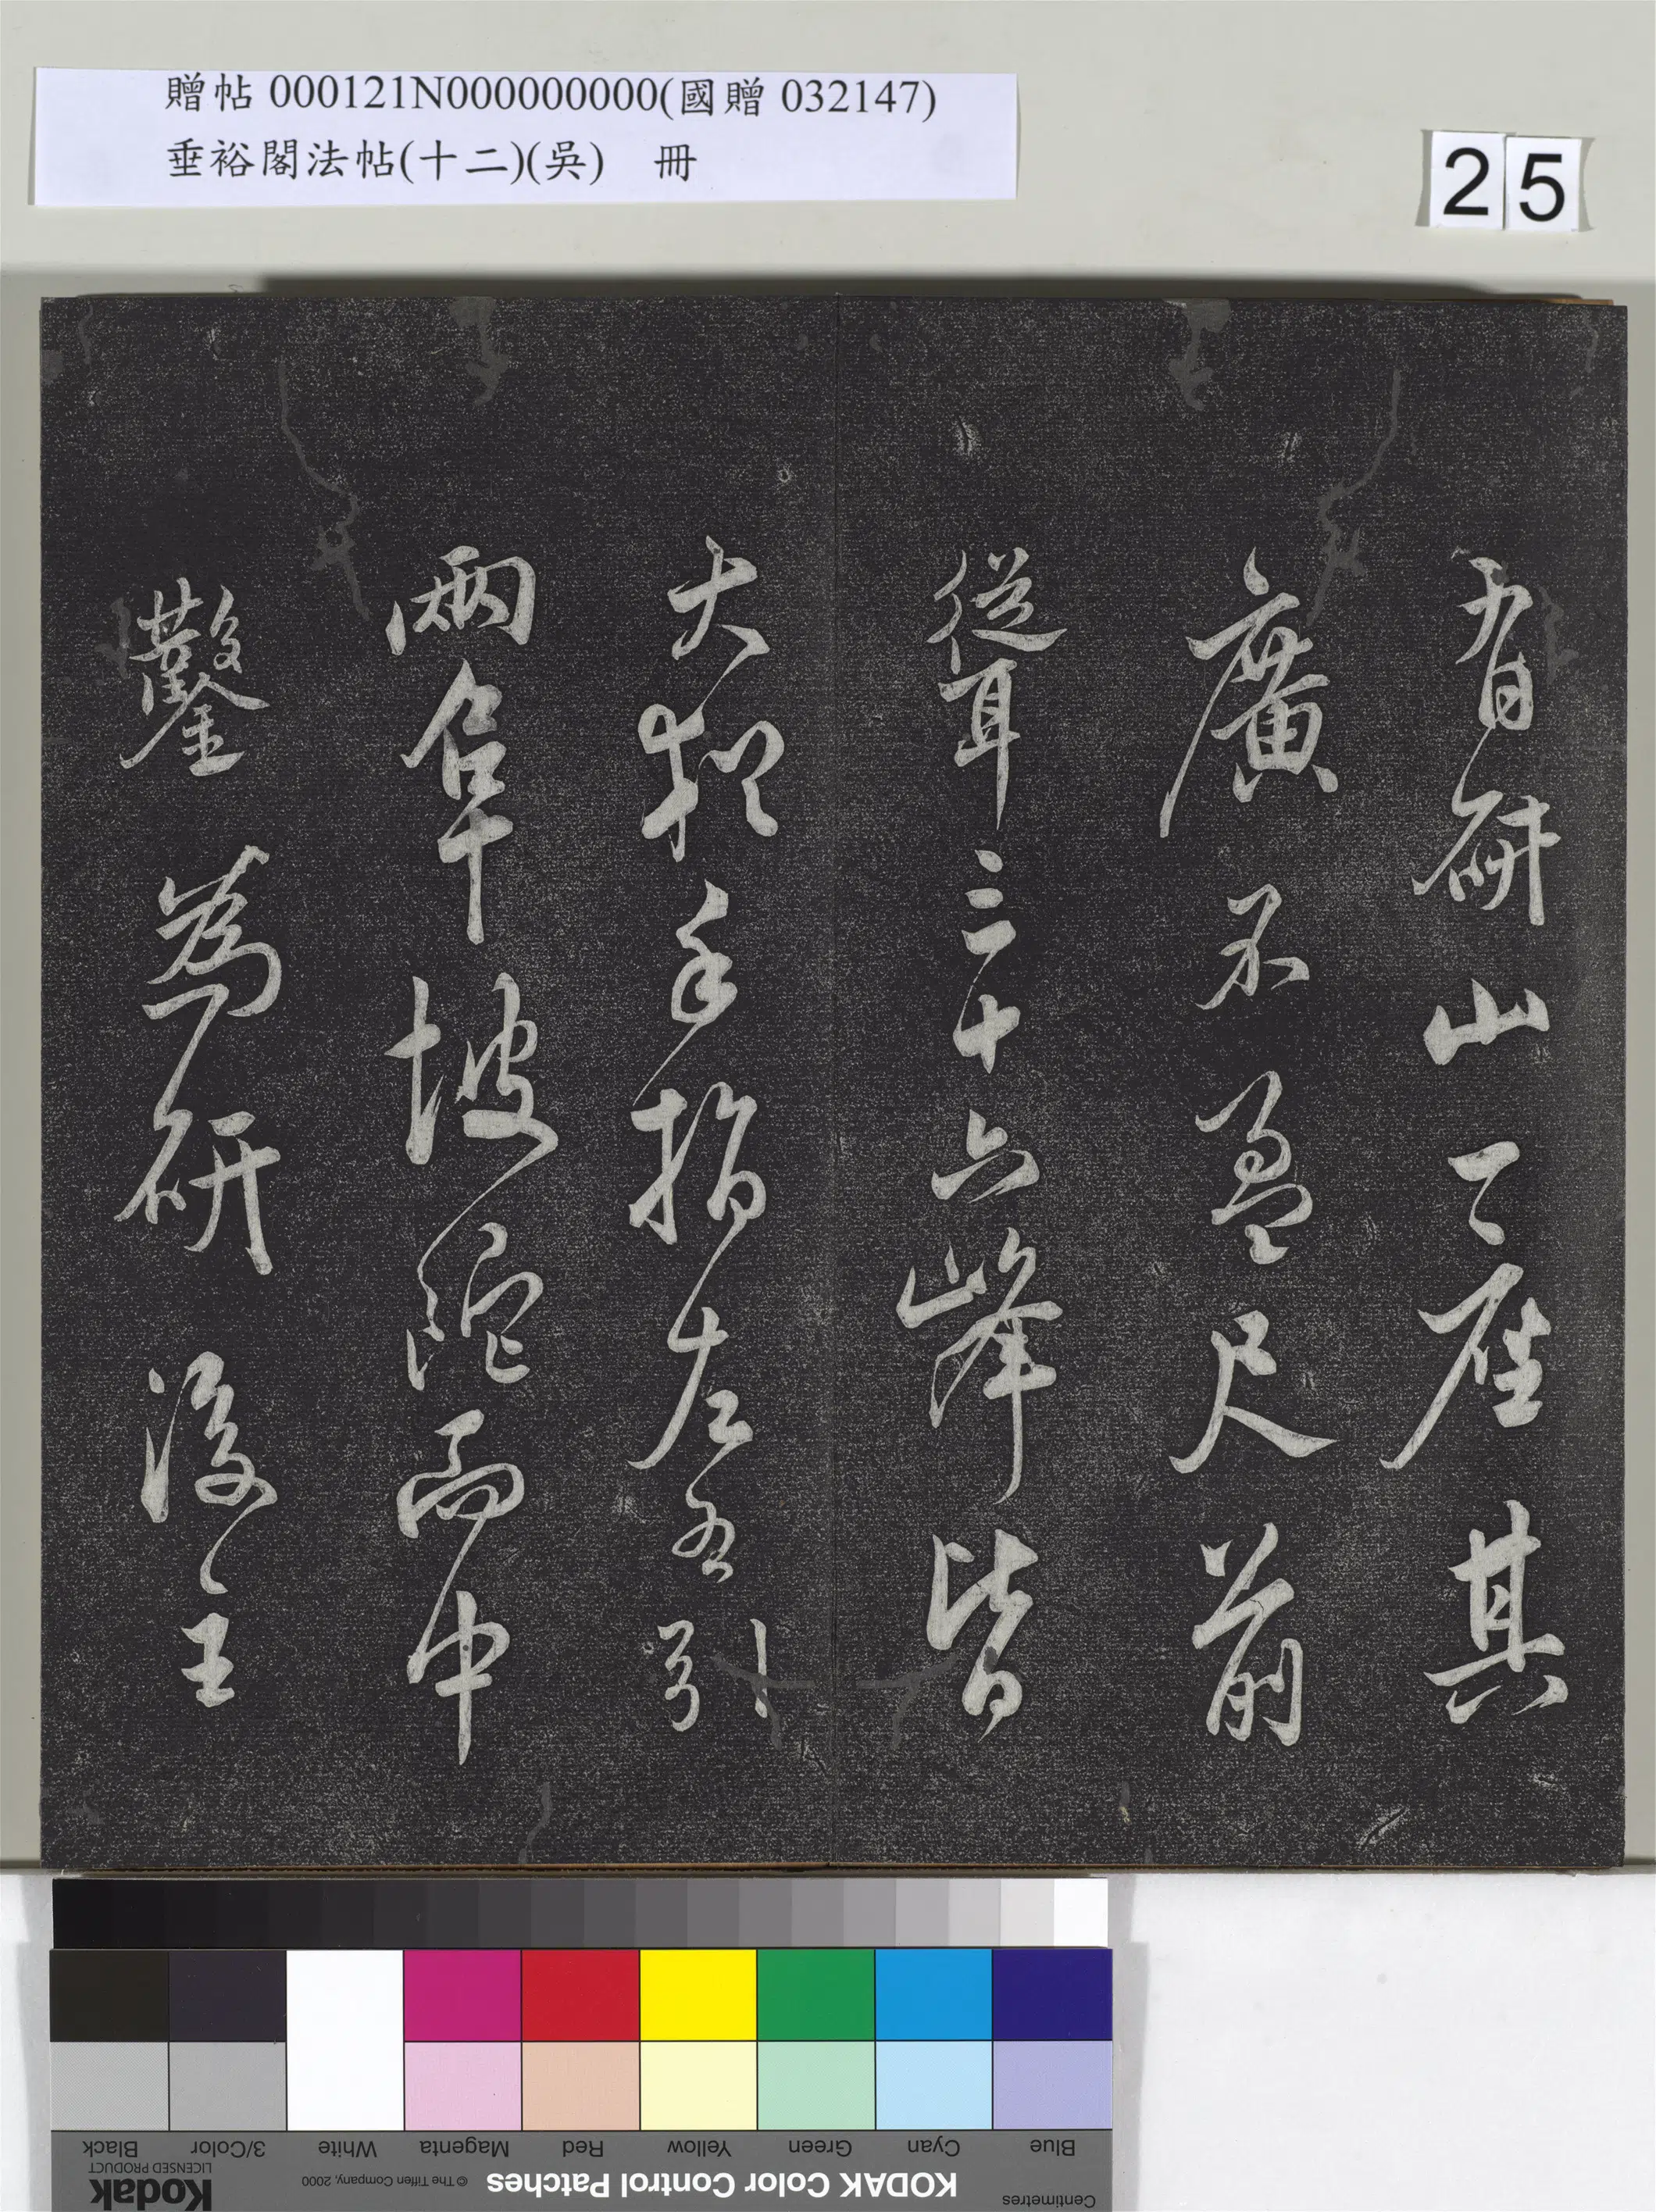 贈帖 000121N000000000(國贈 032147)
垂裕閣法帖(十二)(吳) 冊
25
有研山一座其
廣不盈尺前
從聳三十六峰皆
大猶手指左右引
兩阜坡陀而中
鑿為研後主
Black
3/Color
White
Magenta
Red
Yellow
Green
Cyan
Blue
Kodak
LICENSED PRODUCT
© The Tiffen Company, 2000
KODAK Color Control Patches
Centimetres